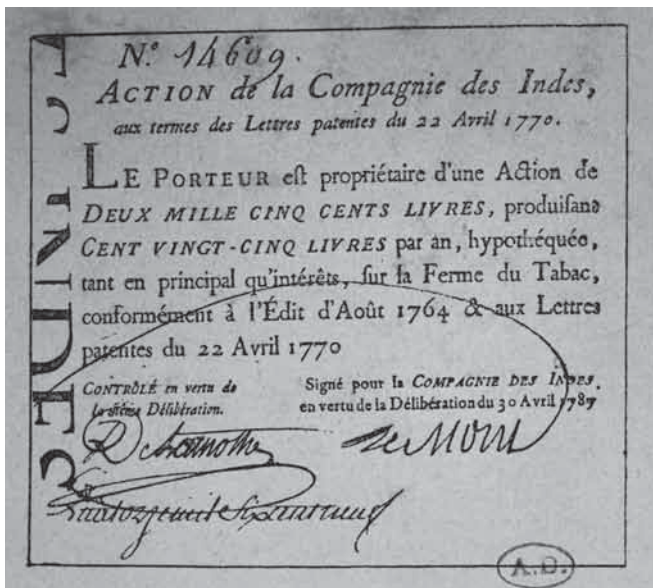 N.º 14609.
ACTION de la Compagnie des Indes,
aux termes des Lettres patentes du 22 Avril 1770.
LE PORTEUR est propriétaire d'une Action de
DEUX MILLE CINQ CENTS LIVRES, produisant
CENT VINGT-CINQ LIVRES par an, hypothéquée,
tant en principal qu'intérêts, sur la Ferme du Tabac,
conformément à l'Édit d'Août 1764 & aux Lettres
patentes du 22 Avril 1770
CONTRÔLÉ en vertu de
la même Délibération.
Signé pour la COMPAGNIE DES INDES,
en vertu de la Délibération du 30 Avril 1787
A.D.
INDES